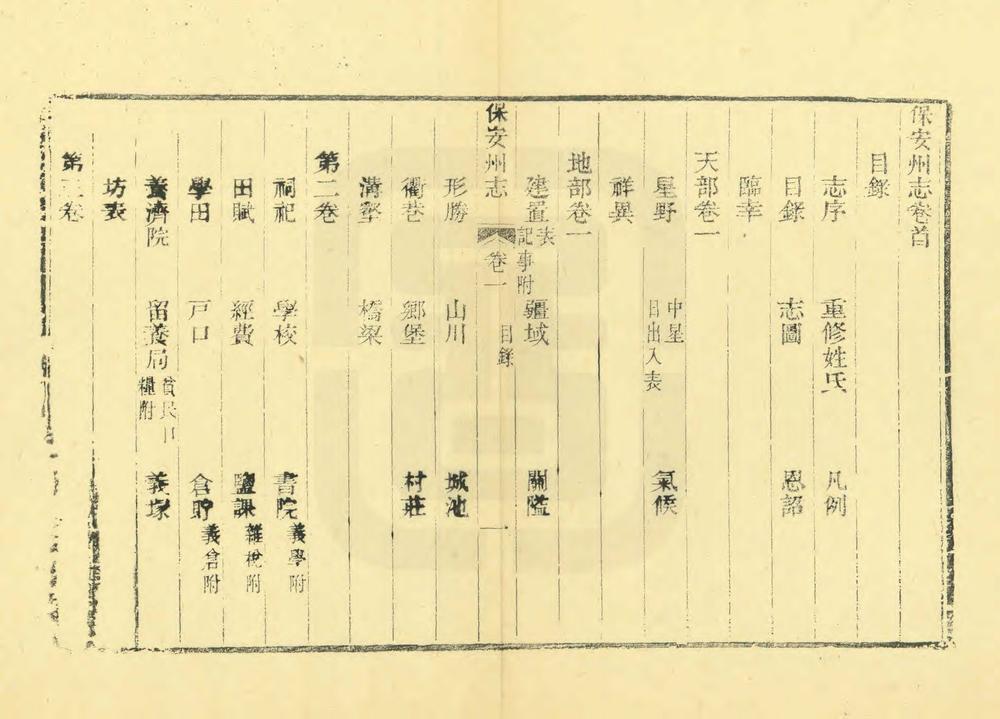 保安州志卷首
目錄
志序 重修姓氏 凡例
目錄 志圖 恩詔
臨幸
天部卷一
星野 中星 日出入表 氣候
祥異
地部卷一
建置表 記事附 疆域 關隘
保安州志 卷一 目錄 一
形勝 山川 城池
衢巷 鄉堡 村莊
溝壑 橋梁
第二卷
祠祀 學校 書院 義學附
田賦 經費 鹽課 雜稅附
學田 戶口 倉貯 義倉附
養濟院 留養局 貧民口糧附 義塚
坊表
第三卷